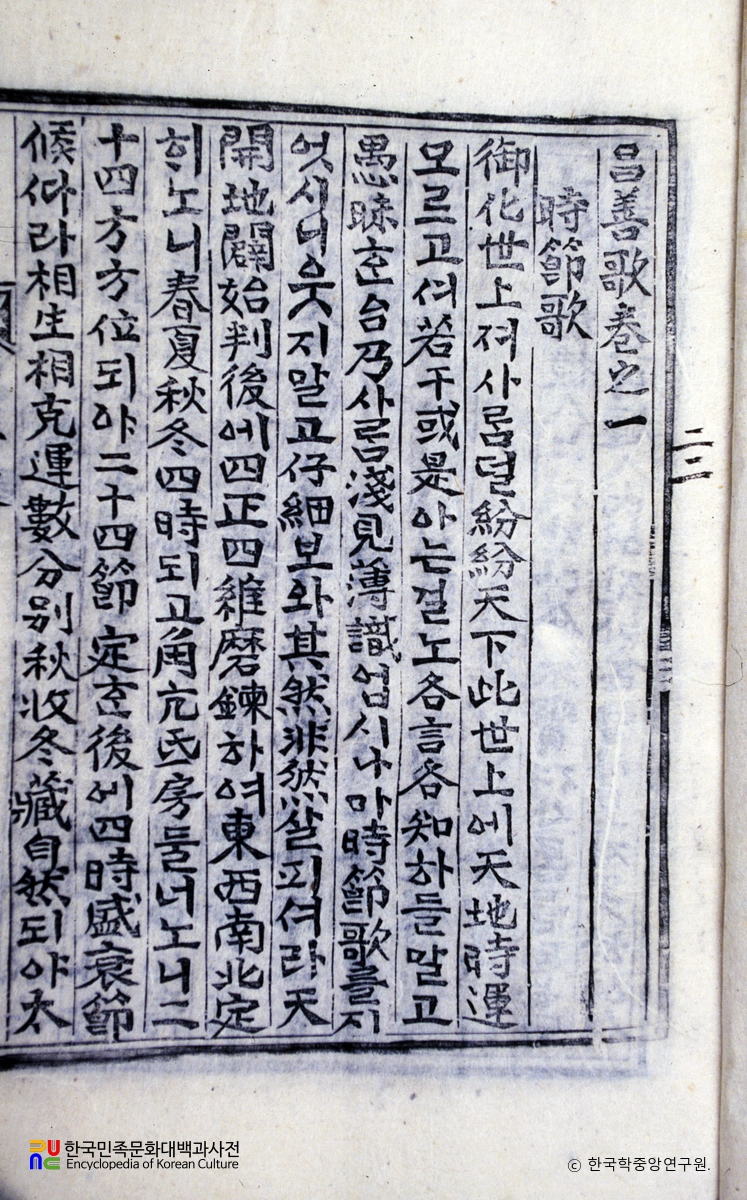 昌善歌卷之一
時節歌
御化世上져사롬덜紛紛天下此世上에天地時運
모르고셔若干或是아는걸노各言各知하들말고
愚昧호台乃사롬淺見薄識업시나마時節歌를지
엇시니웃지말고仔細보와其然非然살피셔라天
開地闢始判後에四正四維磨鍊하여東西南北定
히노니春夏秋冬四時되고角亢氐房둘너노니二
十四方方位되야二十四節定호後에四時盛衰節
候따라相生相克運數分別秋收冬藏自然되야太
二二
한국민족문화대백과사전
Encyclopedia of Korean Culture
© 한국학중앙연구원.